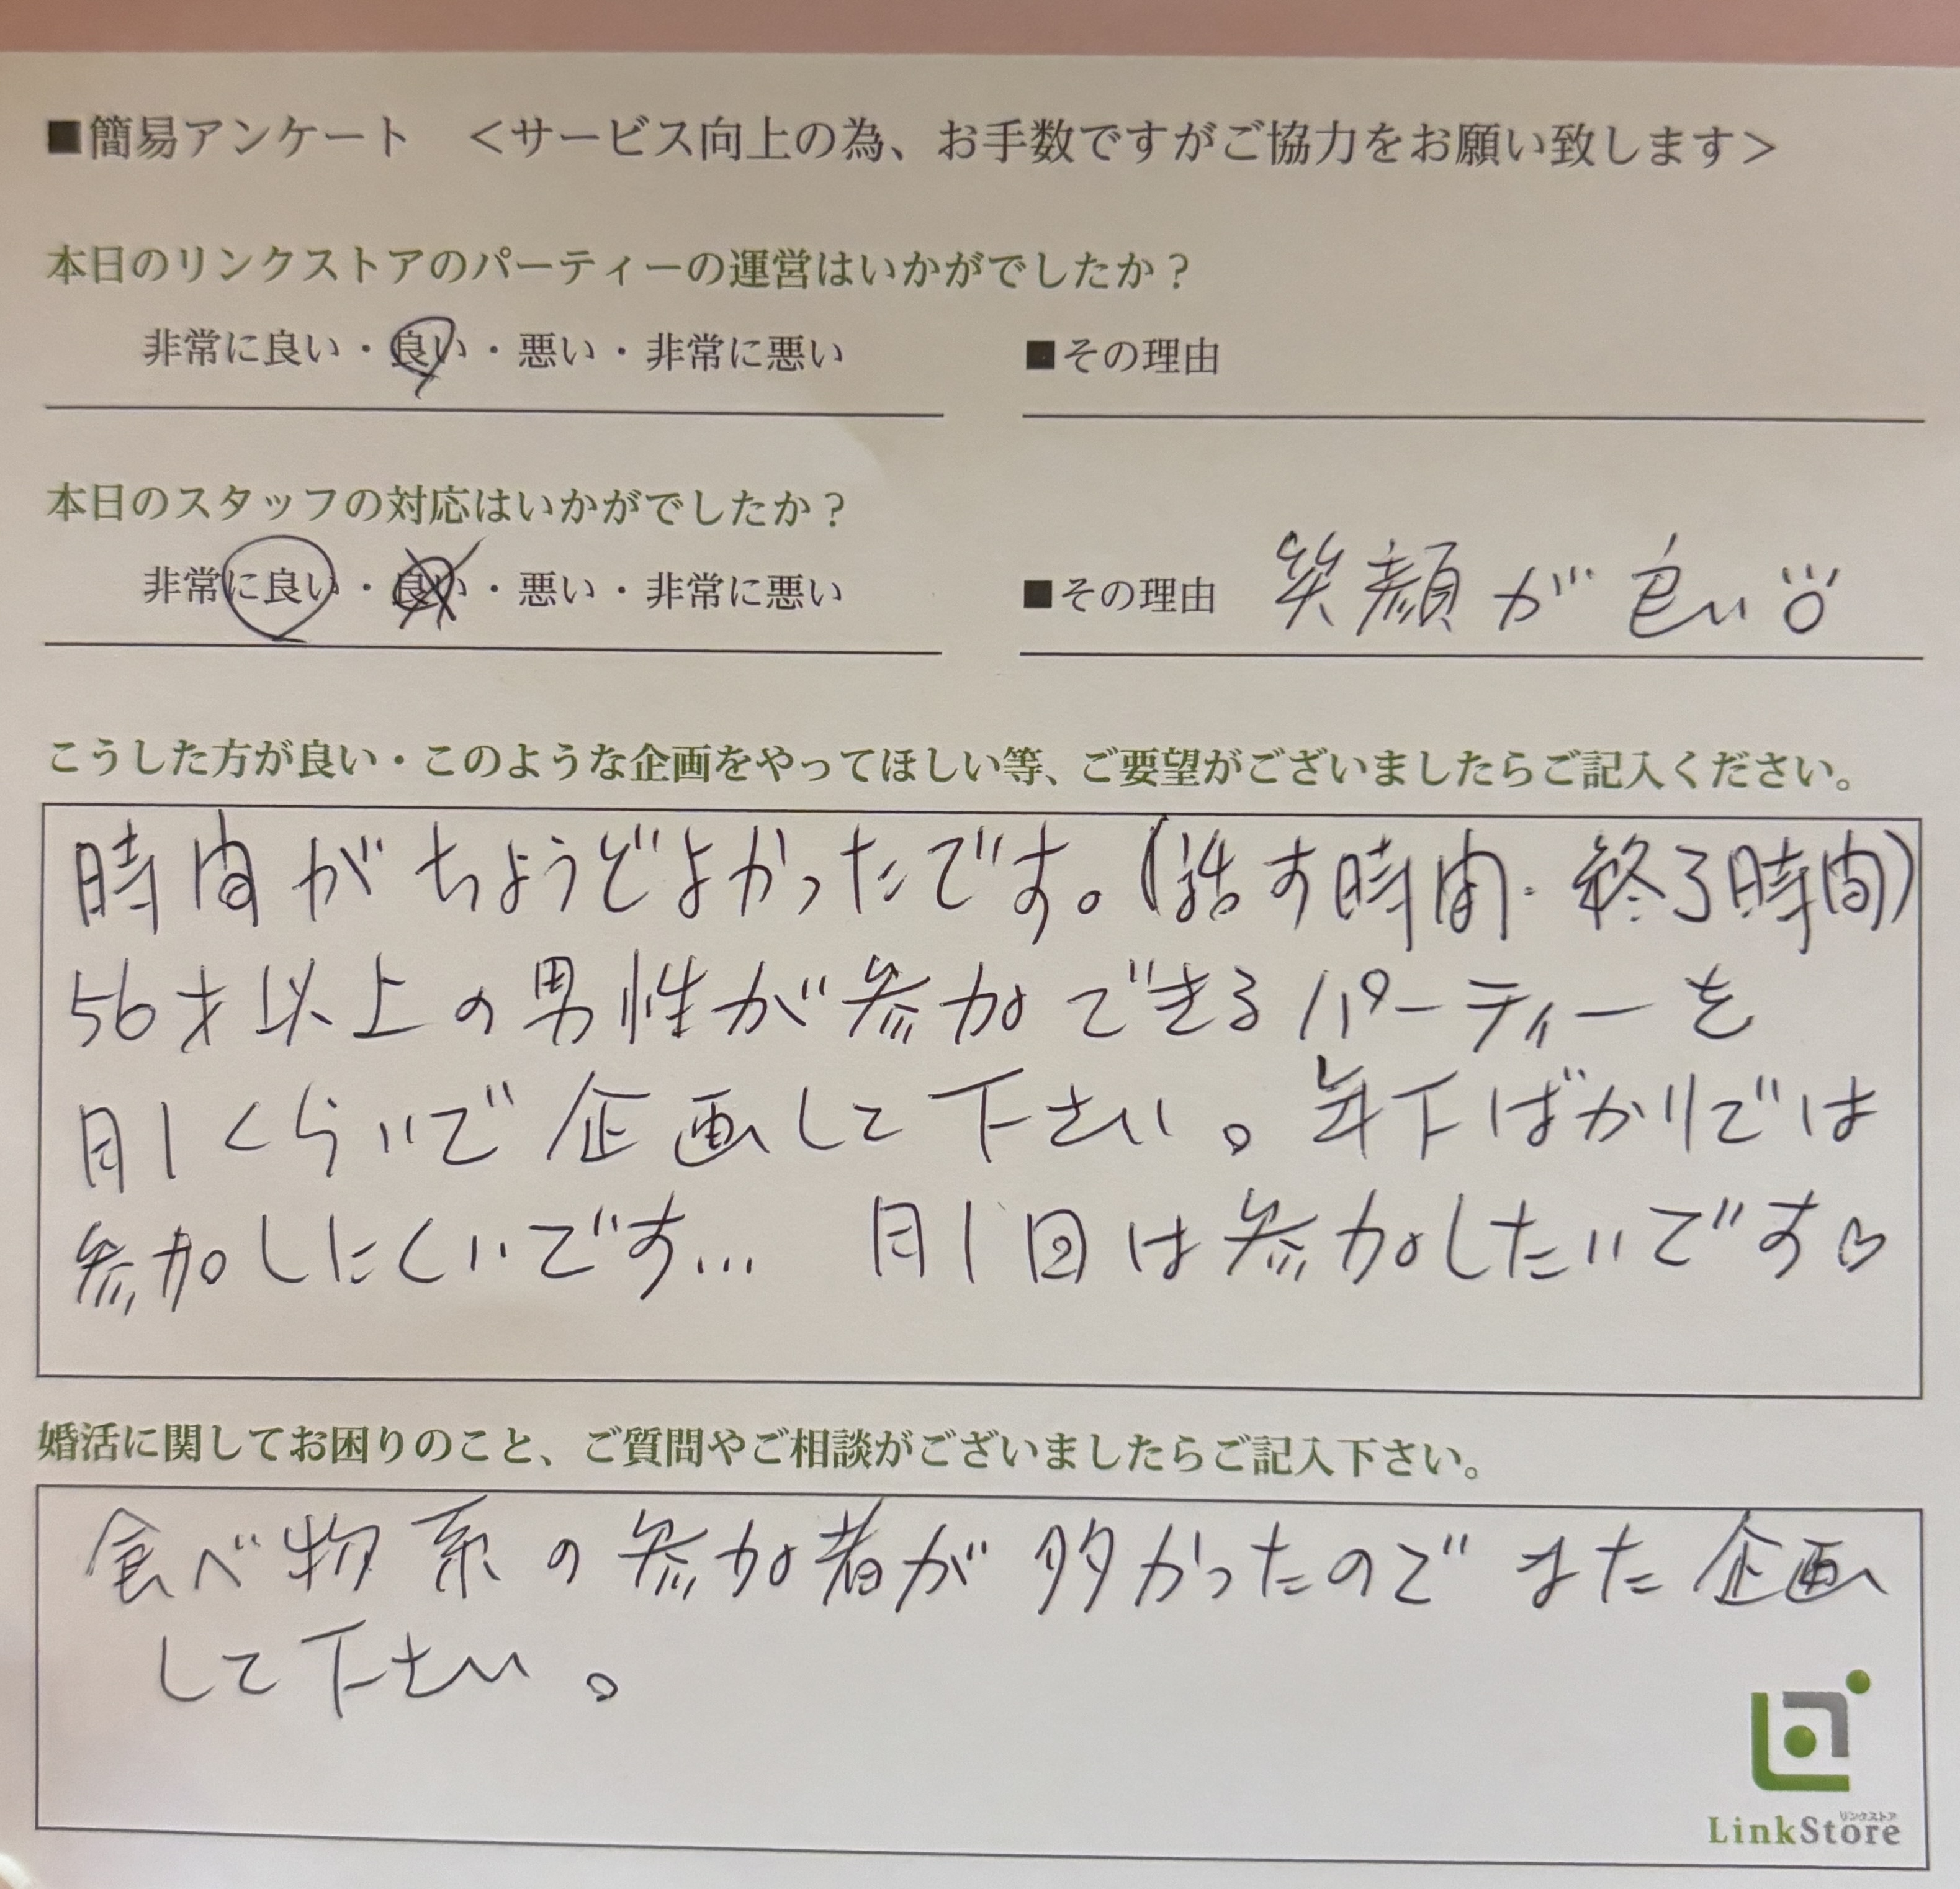 ■簡易アンケート ＜サービス向上の為、お手数ですがご協力をお願い致します＞
本日のリンクストアのパーティーの運営はいかがでしたか？
非常に良い・良い・悪い・非常に悪い ■その理由
本日のスタッフの対応はいかがでしたか？
非常に良い・良い・悪い・非常に悪い ■その理由 笑顔が良い
こうした方が良い・このような企画をやってほしい等、ご要望がございましたらご記入ください。
時間がちょうどよかったです。(話す時間・終了時間)
56才以上の男性が参加できるパーティーを
月1くらいで企画して下さい。年下ばかりでは
参加しにくいです… 月1回は参加したいです♡
婚活に関してお困りのこと、ご質問やご相談がございましたらご記入下さい。
食べ物系の参加者が多かったのでまた企画
して下さい。
リンクストア
LinkStore